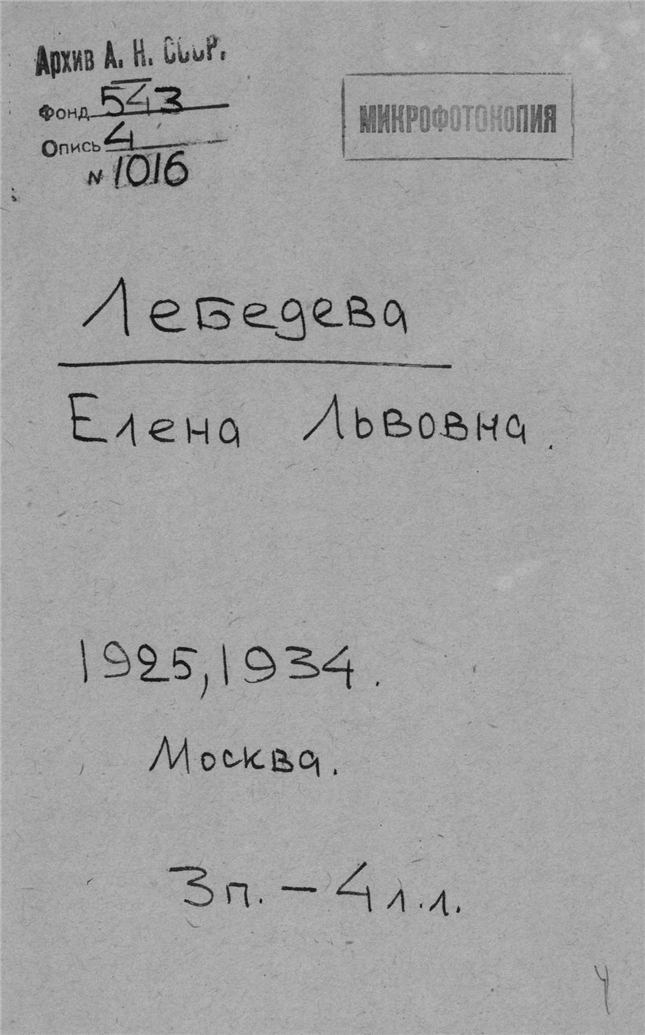 Архив А. Н. СССР.
Фонд 543
Опись 4
№ 1016
МИКРОФОТОКОПИЯ
Лебедева
Елена Львовна.
1925, 1934.
Москва.
3 п. – 4 л.л.
4